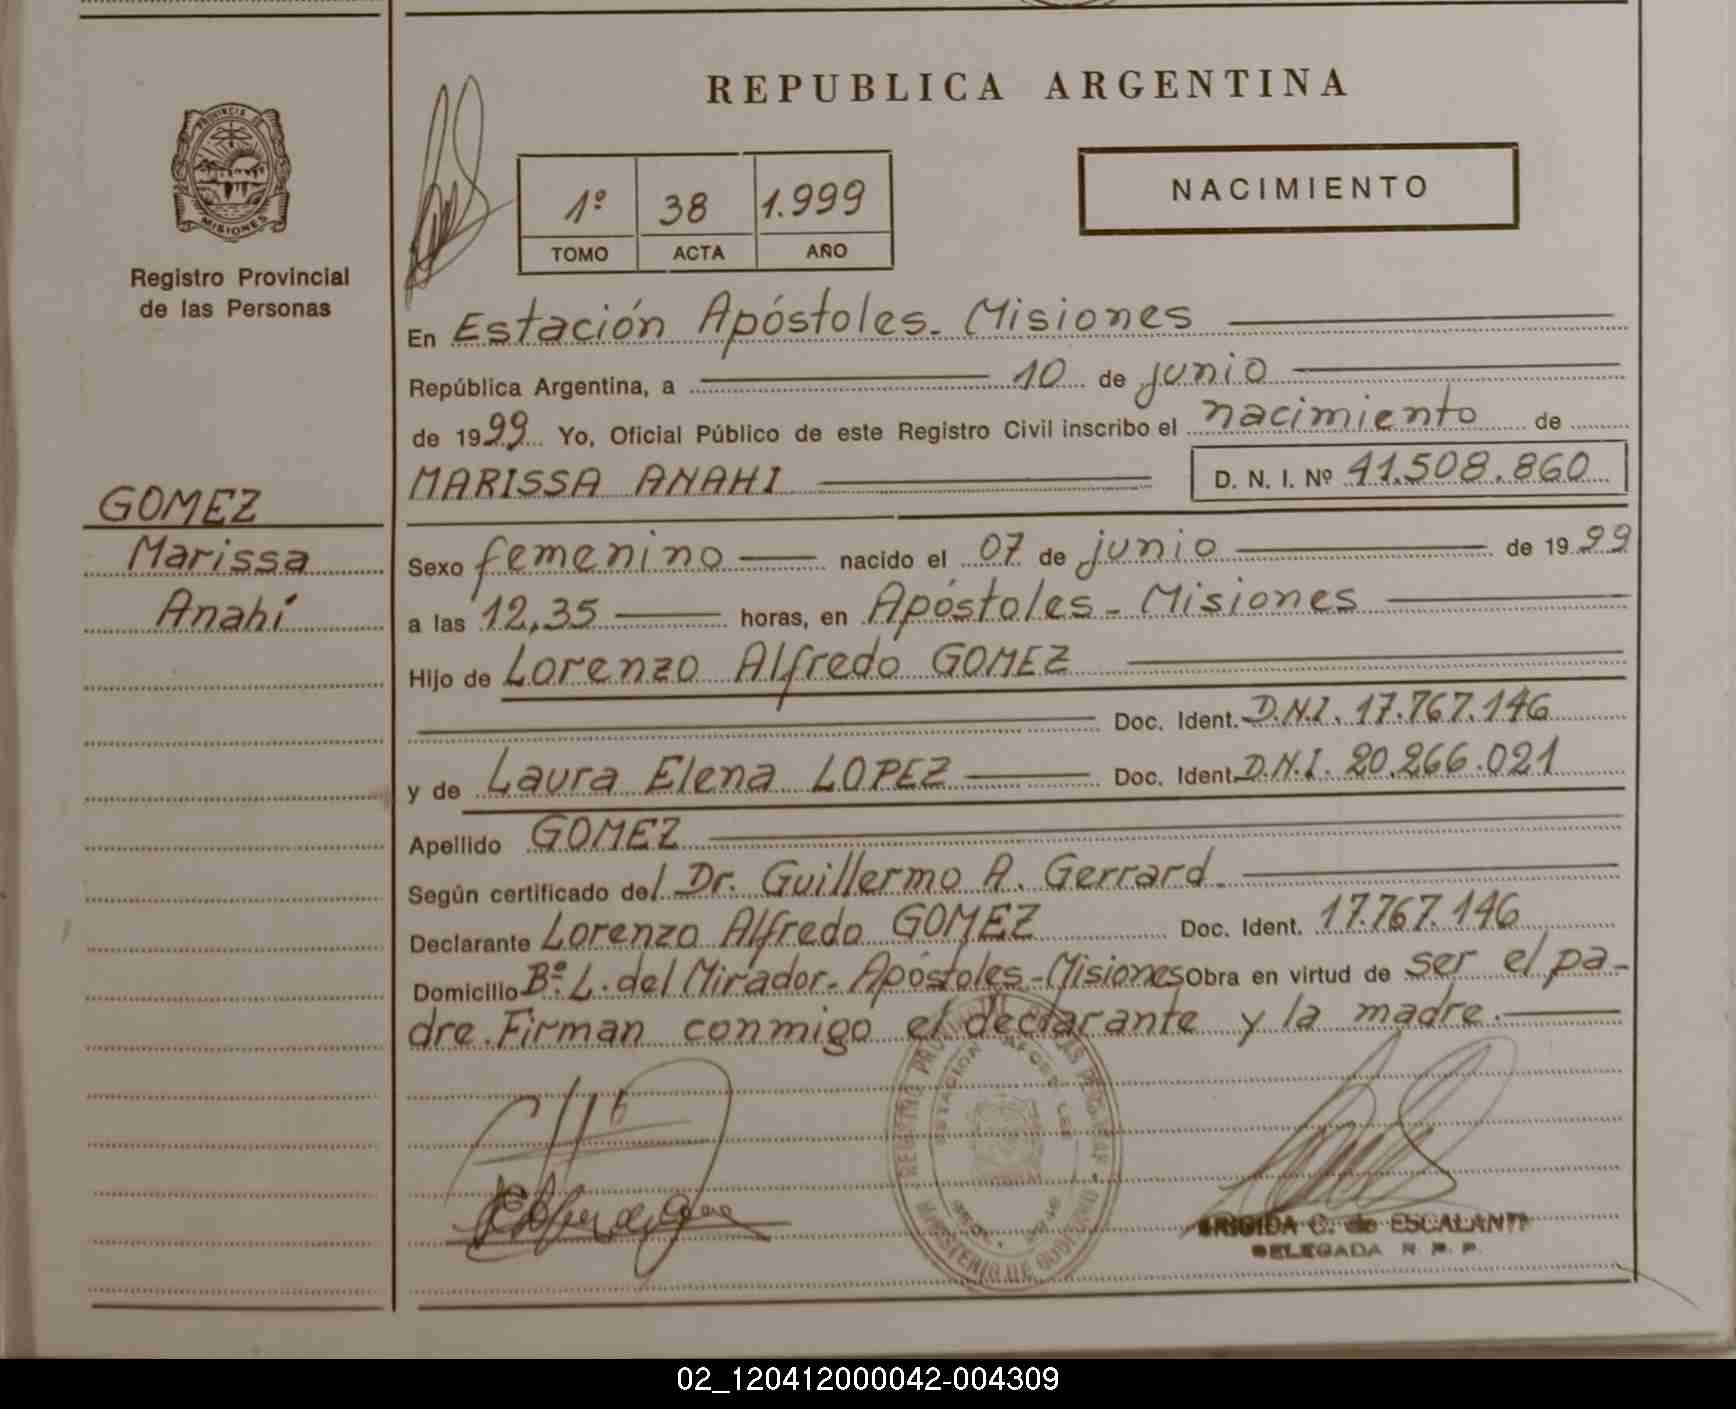 REPUBLICA ARGENTINA
PROVINCIA DE
MISIONES
Registro Provincial
de las Personas
1º 38 1.999
TOMO ACTA AÑO
NACIMIENTO
En Estación Apóstoles - Misiones
República Argentina, a 10 de junio
de 1999 Yo, Oficial Público de este Registro Civil inscribo el nacimiento de
MARISSA ANAHI D. N. I. Nº 41.508.860
GOMEZ
Marissa
Anahí
Sexo femenino nacido el 07 de junio de 1999
a las 12,35 horas, en Apóstoles - Misiones
Hijo de Lorenzo Alfredo GOMEZ
Doc. Ident. D.N.I. 17.767.146
y de Laura Elena LOPEZ Doc. Ident. D.N.I. 20.266.021
Apellido GOMEZ
Según certificado del Dr. Guillermo A. Gerrard
Declarante Lorenzo Alfredo GOMEZ Doc. Ident. 17.767.146
Domicilio Bº L. del Mirador - Apóstoles - Misiones Obra en virtud de ser el pa-
dre. Firman conmigo el declarante y la madre.
BRIGIDA C. de ESCALANTE
DELEGADA R. P. P.
02_120412000042-004309